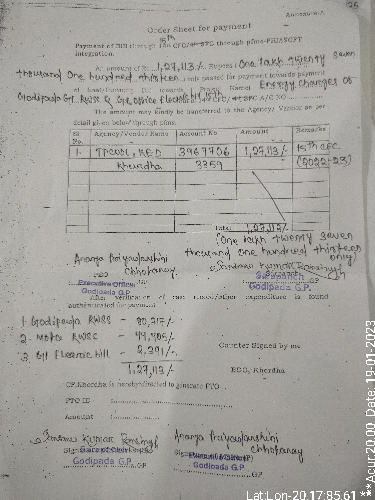 Annexure-A
Order Sheet for payment
15th
Payment of Bill through CFC/ SFC through pfms-PRIASOFT
Integration.
An amount of Rs. 1,27,113/- Rupees (One lakh twenty seven
thousand One hundred thirteen) only passed for payment towards payment
Name Energy Charges of
Godipada GP. RWSS & GP. office Electric
The amount may kindly be transferred to the Agency/ Vendor as per
detail given below through pfms.
Sl No. Agency/Vendor Name Account No Amount Remarks
1. TPCODL, KED 3967706 1,27,113/- 15th CFC
Khordha 3359 (2022-23)
Total 1,27,113/-
(One lakh twenty seven
thousand one hundred thirteen
only)
Ananya Priyadarshini
Chhotaray
PEO
Executive Officer
Godipada G.P.
Sarapanch
Godipada G.P.
After verification of case record/other expenditure is found
authenticated for payment.
1. Godipada RWSS - 80,217/-
2. RWSS - 44,505/-
3. GP Electric bill - 2,391/-
1,27,113/-
Counter Signed by me
BDO, Khordha
CP, Khordha is hereby directed to generate PTO
PTO ID :
Amount :
Ananya Priyadarshini
Chhotaray
Godipada G.P.
GP
Godipada G.P.
GP
Lat:Lon-20.17:85.61
***Acur:20.00, Date: 19-01-2023